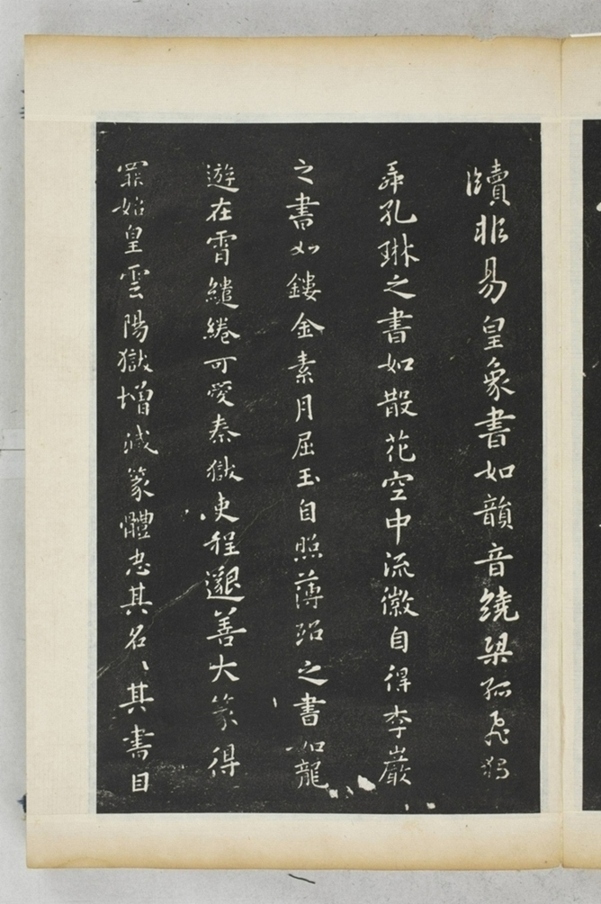 牘非易皇象書如韻音繞梁孤飛獨
舞孔琳之書如散花空中流徽自得李巖
之書如鏤金素月屈玉自照薄紹之書如龍
遊在霄繾綣可愛秦獄吏程邈善大篆得
罪始皇雲陽獄增減篆體忠其名〻其書目